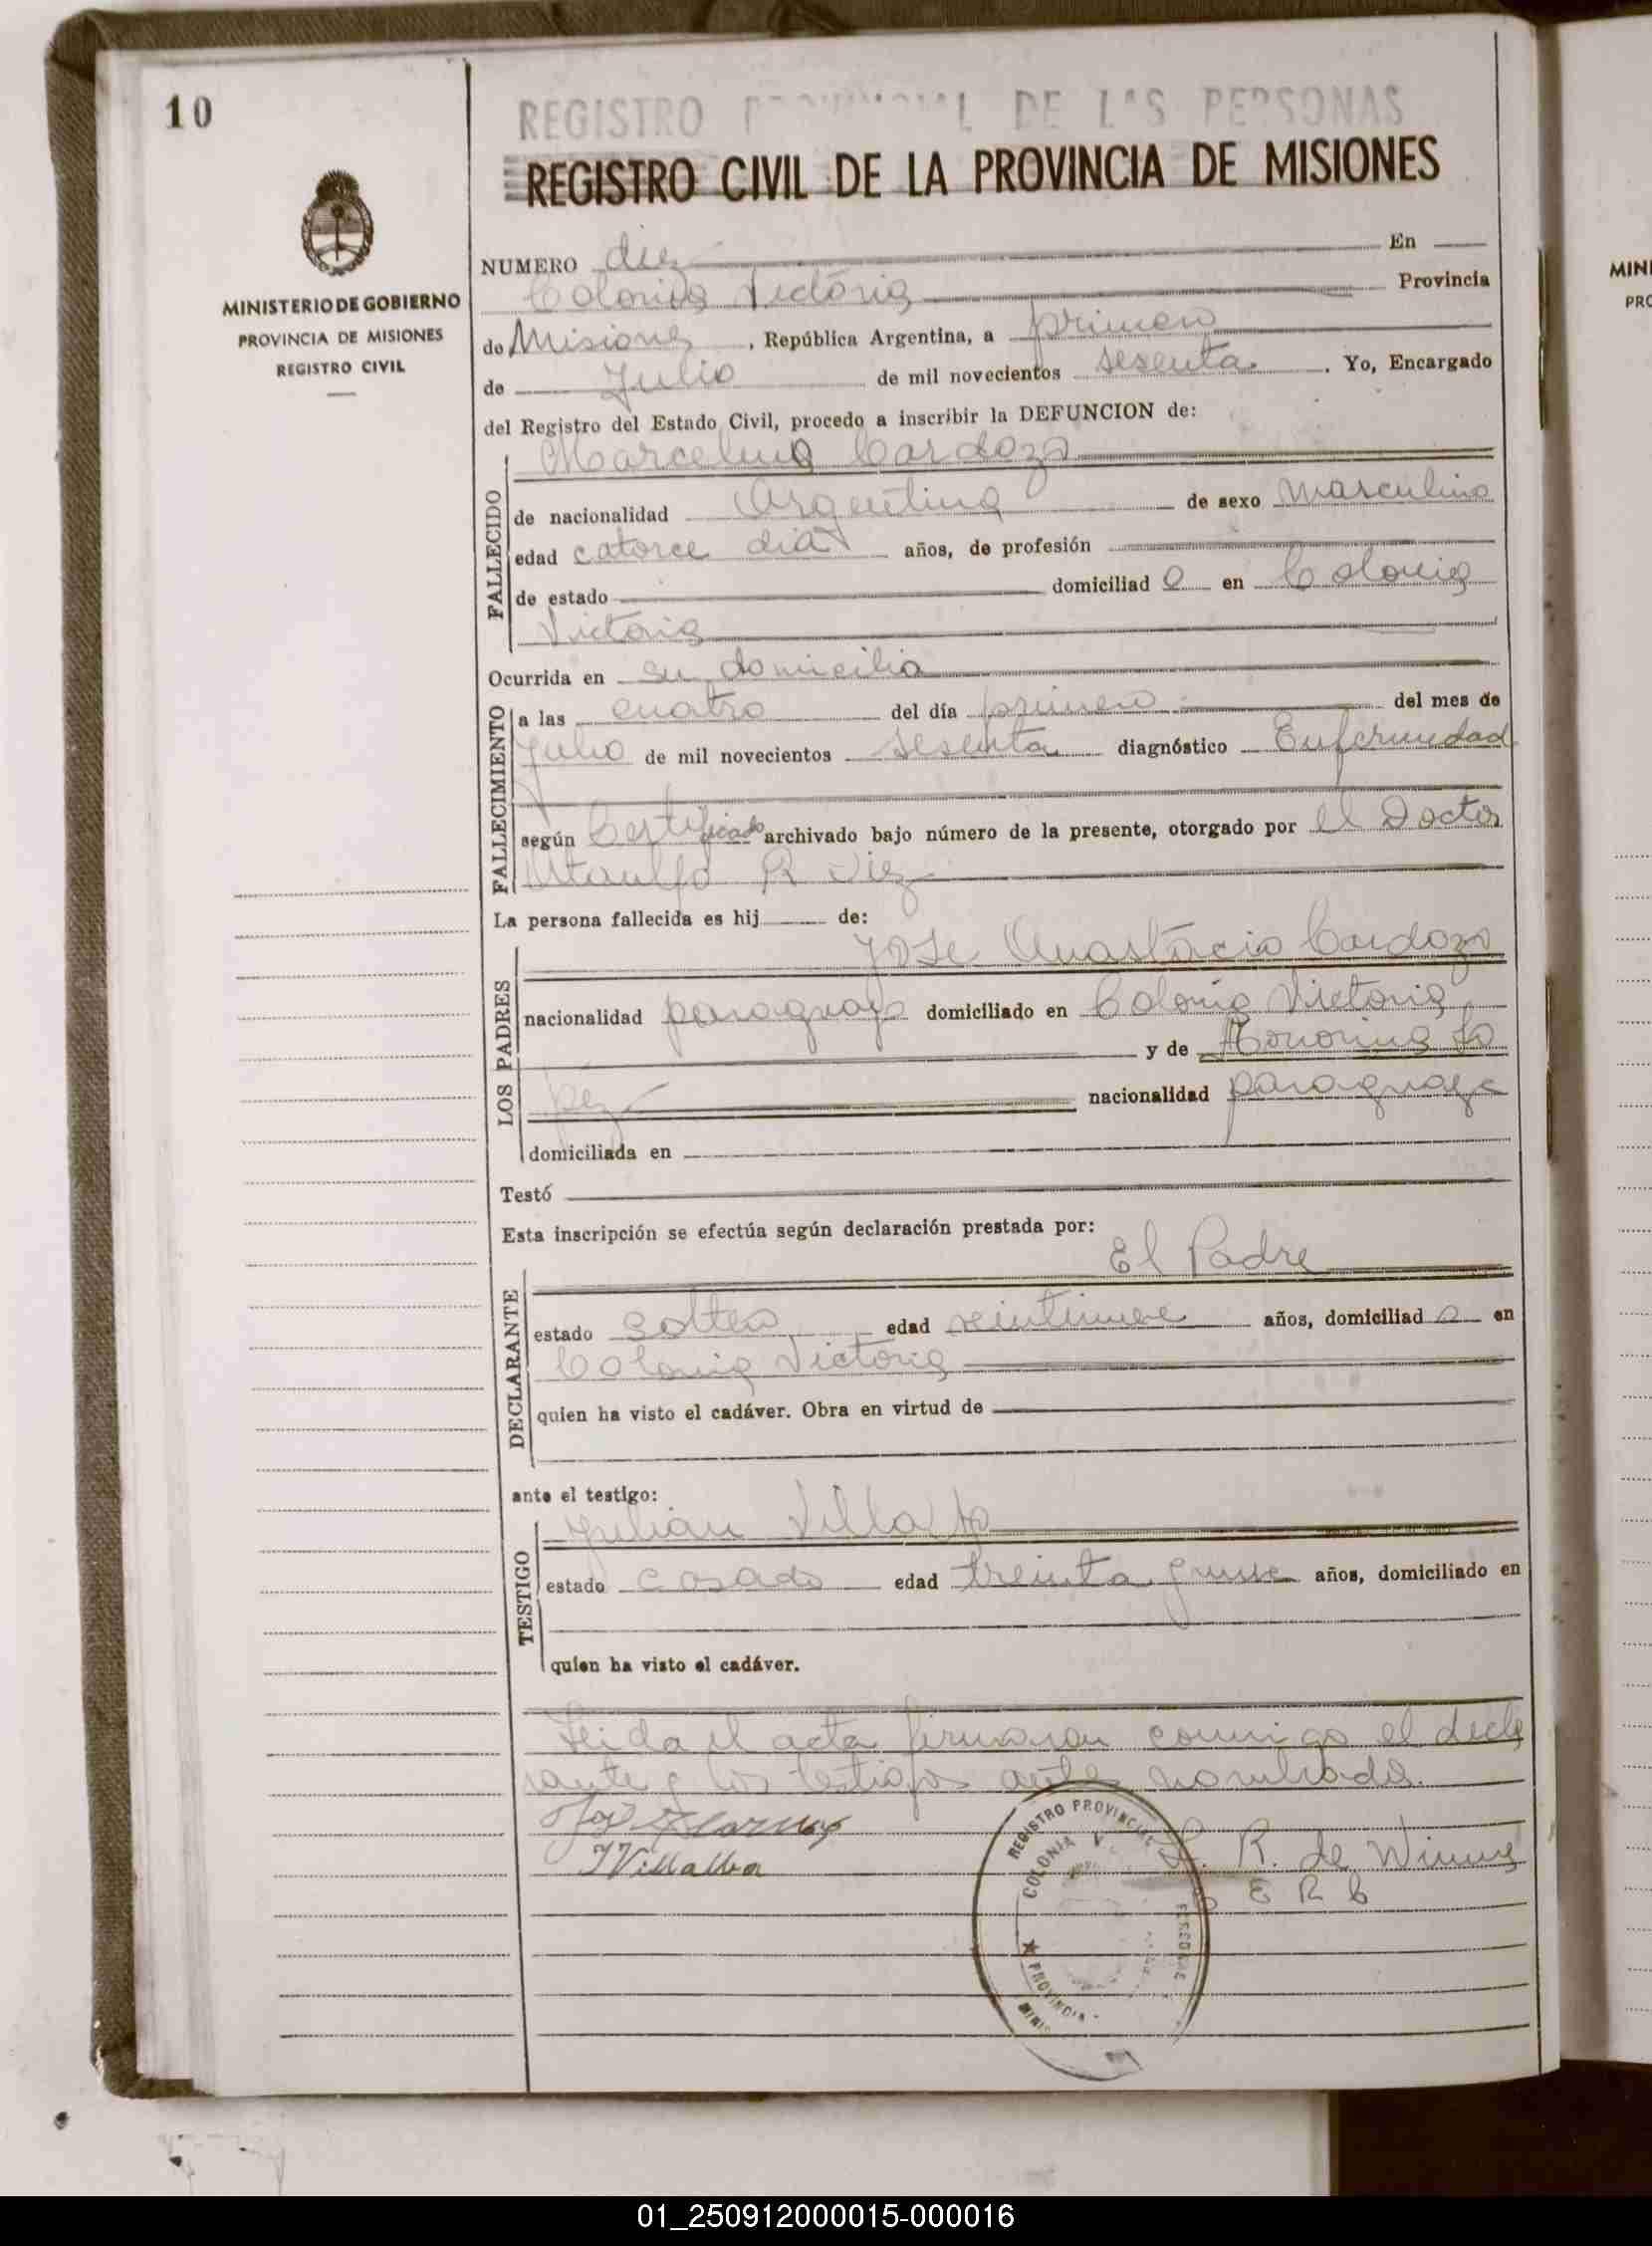 10
REGISTRO DE LAS PERSONAS
REGISTRO CIVIL DE LA PROVINCIA DE MISIONES
MINISTERIO DE GOBIERNO
PROVINCIA DE MISIONES
REGISTRO CIVIL
NUMERO diez En
Colonia Victoria Provincia
de Misiones, República Argentina, a primero
de Julio de mil novecientos sesenta. Yo, Encargado
del Registro del Estado Civil, procedo a inscribir la DEFUNCION de:
FALLECIDO
Marcelino Cardozo
de nacionalidad Argentina de sexo masculino
edad catorce dias años, de profesión
de estado domiciliad o en Colonia
Victoria
Ocurrida en su domicilio
FALLECIMIENTO
a las cuatro del día primero del mes de
Julio de mil novecientos sesenta diagnóstico Enfermedad
según Certificado archivado bajo número de la presente, otorgado por el Doctor
R Diez
La persona fallecida es hij de:
LOS PADRES
José Anastacio Cardozo
nacionalidad paraguayo domiciliado en Colonia Victoria
y de Honorina Lo
pez nacionalidad paraguaya
domiciliada en
Testó
Esta inscripción se efectúa según declaración prestada por:
DECLARANTE
El Padre
estado soltero edad veintinueve años, domiciliad o en
Colonia Victoria
quien ha visto el cadáver. Obra en virtud de
ante el testigo:
TESTIGO
Julian Villalba
estado casado edad treinta años, domiciliado en
quien ha visto el cadáver.
Leida el acta firmaron conmigo el decla
rante y los testigos antes nombrados.
J Villalba
R. de
E R C
REGISTRO PROVINCIAL
COLONIA V
PROVINCIA
MINI
MINI
PRO
01_250912000015-000016